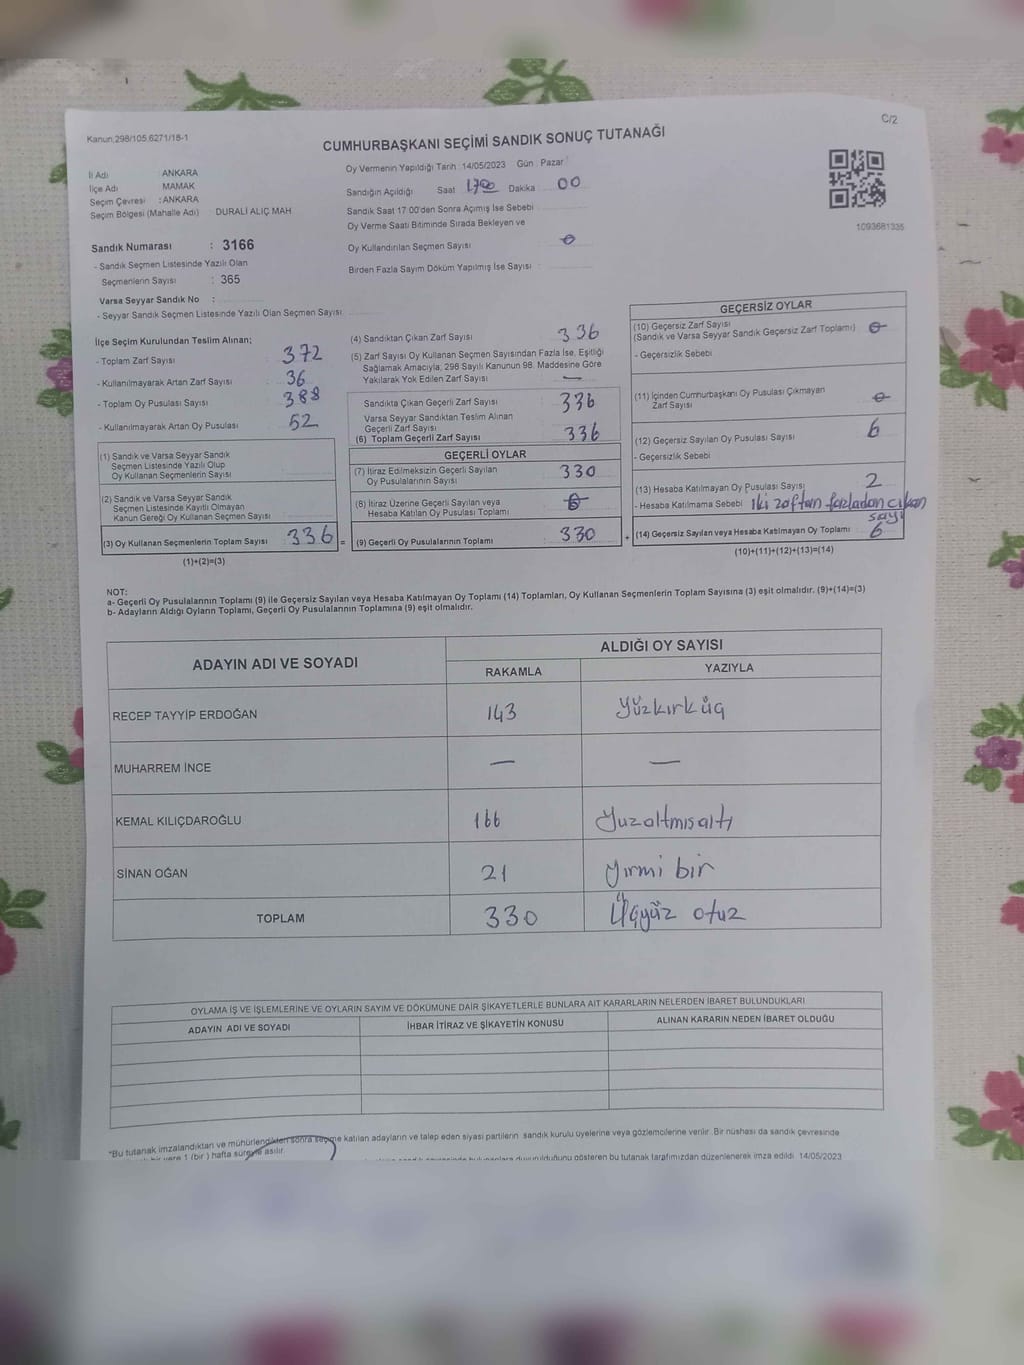 Kanun.298/105.6271/18-1
C/2
CUMHURBAŞKANI SEÇİMİ SANDIK SONUÇ TUTANAĞI
İl Adı : ANKARA
İlçe Adı : MAMAK
Seçim Çevresi : ANKARA
Seçim Bölgesi (Mahalle Adı) : DURALİ ALIÇ MAH
Sandık Numarası : 3166
- Sandık Seçmen Listesinde Yazılı Olan
Seçmenlerin Sayısı : 365
Varsa Seyyar Sandık No :
- Seyyar Sandık Seçmen Listesinde Yazılı Olan Seçmen Sayısı
Oy Vermenin Yapıldığı Tarih : 14/05/2023 Gün : Pazar
Sandığın Açıldığı Saat 1700 Dakika 00
Sandık Saat 17:00'den Sonra Açımış İse Sebebi
Oy Verme Saati Bitiminde Sırada Bekleyen ve
Oy Kullandırılan Seçmen Sayısı 0
Birden Fazla Sayım Döküm Yapılmış İse Sayısı :
1093681335
İlçe Seçim Kurulundan Teslim Alınan;
- Toplam Zarf Sayısı : 372
- Kullanılmayarak Artan Zarf Sayısı : 36
- Toplam Oy Pusulası Sayısı : 388
- Kullanılmayarak Artan Oy Pusulası : 52
(1) Sandık ve Varsa Seyyar Sandık
Seçmen Listesinde Yazılı Olup
Oy Kullanan Seçmenlerin Sayısı
(2) Sandık ve Varsa Seyyar Sandık
Seçmen Listesinde Kayıtlı Olmayan
Kanun Gereği Oy Kullanan Seçmen Sayısı
(3) Oy Kullanan Seçmenlerin Toplam Sayısı : 336 =
(1)+(2)=(3)
(4) Sandıktan Çıkan Zarf Sayısı : 336
(5) Zarf Sayısı Oy Kullanan Seçmen Sayısından Fazla İse, Eşitliği
Sağlamak Amacıyla, 298 Sayılı Kanunun 98. Maddesine Göre
Yakılarak Yok Edilen Zarf Sayısı : —
Sandıkta Çıkan Geçerli Zarf Sayısı : 336
Varsa Seyyar Sandıktan Teslim Alınan
Geçerli Zarf Sayısı
(6) Toplam Geçerli Zarf Sayısı : 336
GEÇERLİ OYLAR
(7) İtiraz Edilmeksizin Geçerli Sayılan
Oy Pusulalarının Sayısı : 330
(8) İtiraz Üzerine Geçerli Sayılan veya
Hesaba Katılan Oy Pusulası Toplamı
(9) Geçerli Oy Pusulalarının Toplamı : 330 +
GEÇERSİZ OYLAR
(10) Geçersiz Zarf Sayısı
(Sandık ve Varsa Seyyar Sandık Geçersiz Zarf Toplamı) : 0
- Geçersizlik Sebebi
(11) İçinden Cumhurbaşkanı Oy Pusulası Çıkmayan
Zarf Sayısı : 0
(12) Geçersiz Sayılan Oy Pusulası Sayısı : 6
- Geçersizlik Sebebi
(13) Hesaba Katılmayan Oy Pusulası Sayısı : 2
- Hesaba Katılmama Sebebi İki zaftan fazladan çıkan
sayı
(14) Geçersiz Sayılan veya Hesaba Katılmayan Oy Toplamı : 6
(10)+(11)+(12)+(13)=(14)
NOT:
a- Geçerli Oy Pusulalarının Toplamı (9) ile Geçersiz Sayılan veya Hesaba Katılmayan Oy Toplamı (14) Toplamları, Oy Kullanan Seçmenlerin Toplam Sayısına (3) eşit olmalıdır. (9)+(14)=(3)
b- Adayların Aldığı Oyların Toplamı, Geçerli Oy Pusulalarının Toplamına (9) eşit olmalıdır.
ADAYIN ADI VE SOYADI
ALDIĞI OY SAYISI
RAKAMLA YAZIYLA
RECEP TAYYİP ERDOĞAN 143 Yüzkırküç
MUHARREM İNCE — —
KEMAL KILIÇDAROĞLU 166 Yuzaltmısaltı
SİNAN OĞAN 21 Yirmi bir
TOPLAM 330 Üçyüz otuz
OYLAMA İŞ VE İŞLEMLERİNE VE OYLARIN SAYIM VE DÖKÜMÜNE DAİR ŞİKAYETLERLE BUNLARA AİT KARARLARIN NELERDEN İBARET BULUNDUKLARI
ADAYIN ADI VE SOYADI İHBAR İTİRAZ VE ŞİKAYETİN KONUSU ALINAN KARARIN NEDEN İBARET OLDUĞU
*Bu tutanak imzalandıktan ve mühürlendikten sonra seçime katılan adayların ve talep eden siyasi partilerin sandık kurulu üyelerine veya gözlemcilerine verilir. Bir nüshası da sandık çevresinde
1 (bir) hafta süreyle asılır.
bu tutanak tarafımızdan düzenlenerek imza edildi. 14/05/2023